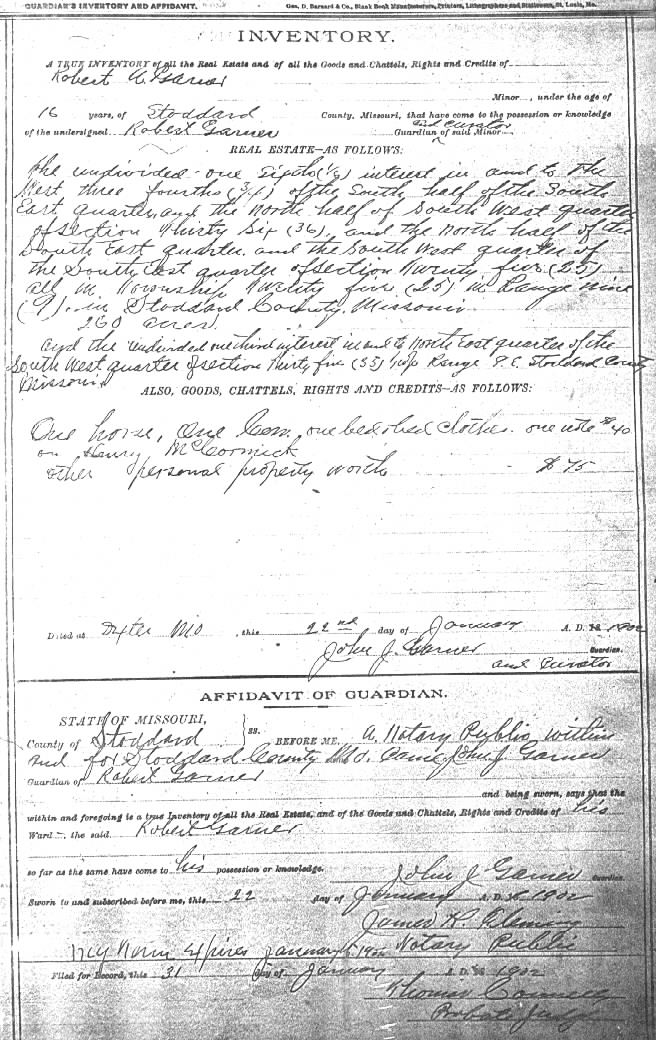 GUARDIAN'S INVENTORY AND AFFIDAVIT. Geo. D. Barnard & Co., Blank Book Manufacturers, Printers, Lithographers and Stationers, St. Louis, Mo.
INVENTORY.
A TRUE INVENTORY of all the Real Estate and of all the Goods and Chattels, Rights and Credits of
Robert A. Garner
Minor , under the age of
16 years, of Stoddard County, Missouri, that have come to the possession or knowledge
and Curator
of the undersigned Robert Garner Guardian of said Minor
REAL ESTATE—AS FOLLOWS:
The undivided one Eighth (1/8) interest in and to the
West three fourths (3/4) of the South half of the South
East quarter, and the North half of South West quarter
of section Thirty Six (36), and the North half of the
South East quarter and the South West quarter of
the South East quarter of section Twenty five (25)
all in Township Twenty five (25) in Range nine
(9) in Stoddard County, Missouri
260 acres.
and the undivided one third interest in and to North East quarter of the
South West quarter of section Thirty five (35) Range 9. E. Stoddard County
Missouri
ALSO, GOODS, CHATTELS, RIGHTS AND CREDITS—AS FOLLOWS:
One horse, One Cow, one bed & bed clothes. one note $40
on Henry McCormick
other personal property worth $75
Dated at Dexter Mo , this 22nd day of January A. D. 1902
John J. Garner Guardian.
and Curator
AFFIDAVIT OF GUARDIAN.
STATE OF MISSOURI,
County of Stoddard } ss. BEFORE ME, A Notary Public within
and for Stoddard County Mo. Came John J. Garner
Guardian of Robert Garner
and being sworn, says that the
within and foregoing is a true Inventory of all the Real Estate, and of the Goods and Chattels, Rights and Credits of his
Ward , the said Robert Garner
so far as the same have come to his possession or knowledge. John J Garner Guardian.
Sworn to and subscribed before me, this 22 day of January A. D. 1902
James K. Fleming
My Term Expires January Notary Public
Filed for Record, this 31 day of January A. D. 1902
Thomas Connelly
Probate Judge